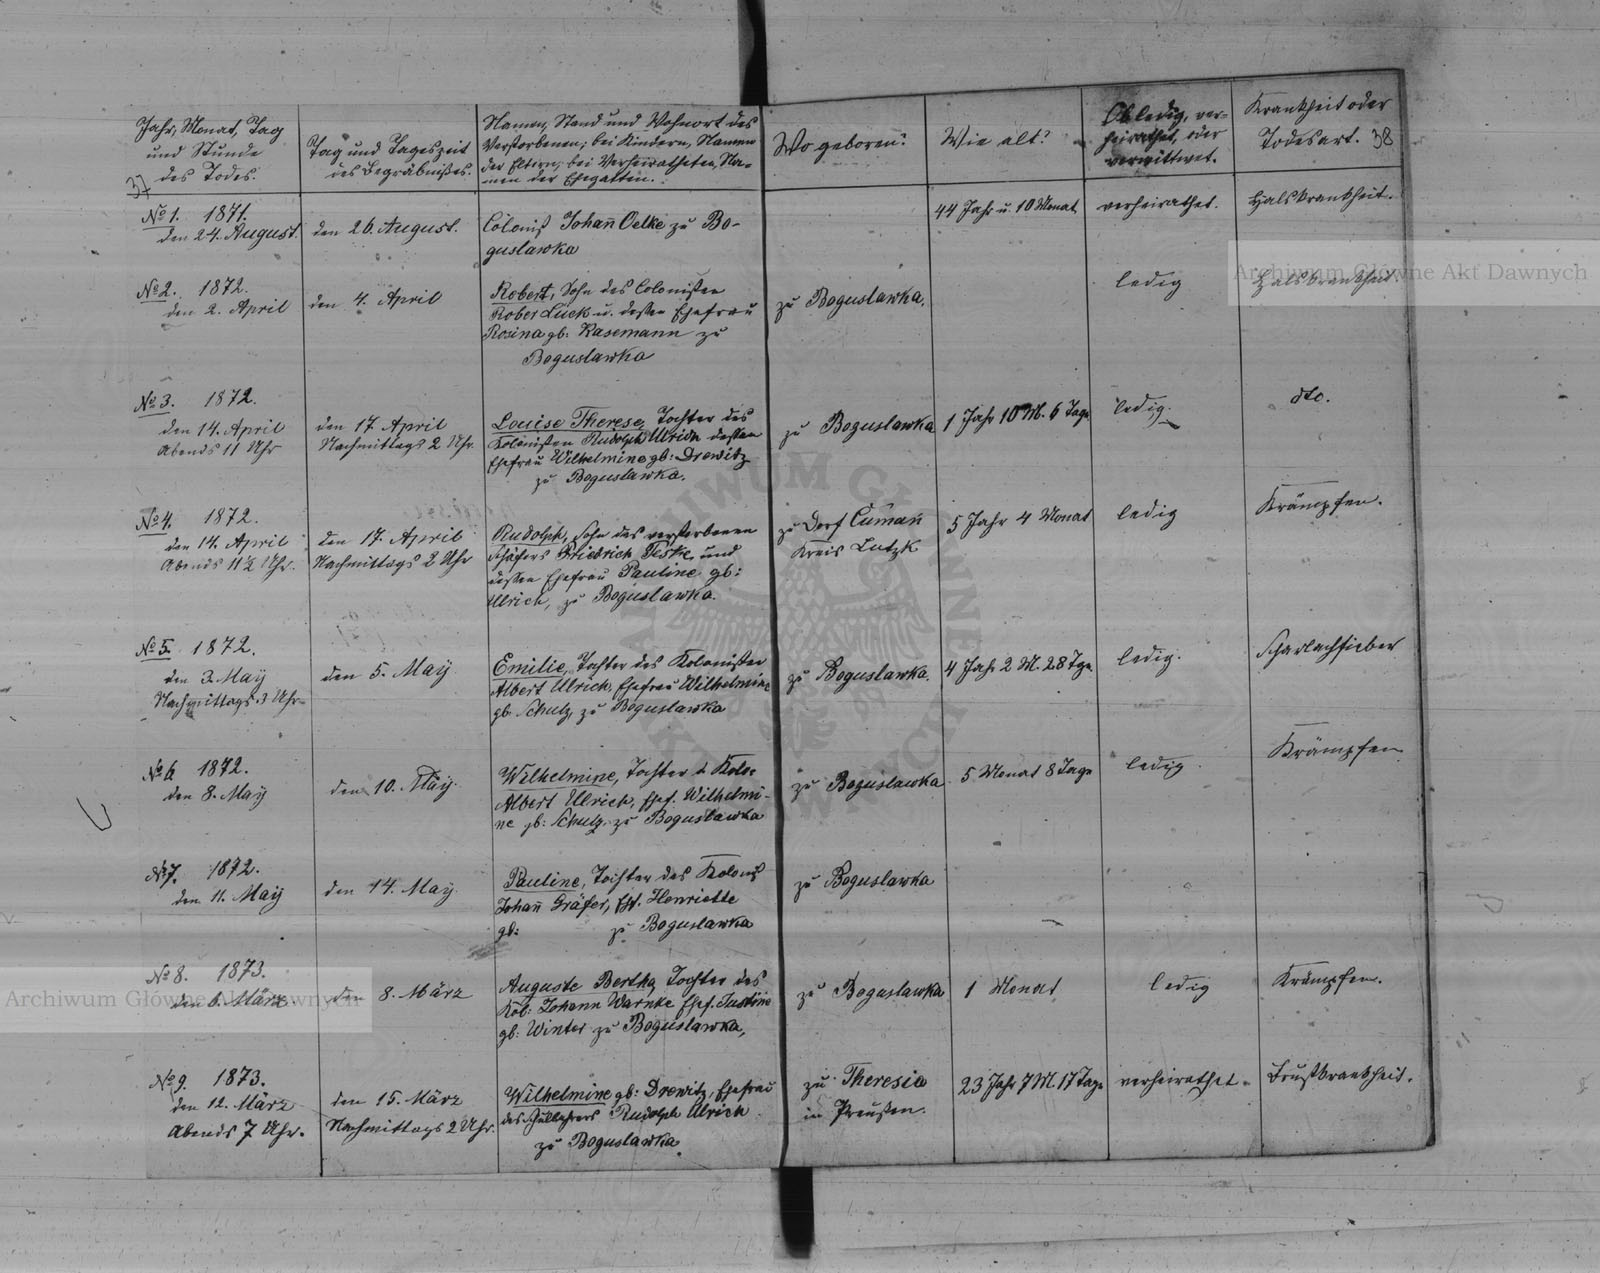 37
Jahr, Monat, Tag
und Stunde
des Todes.
Tag und Tageszeit
des Begräbnißes.
Namen, Stand und Wohnort des
Verstorbenen; bei Kindern, Namen
der Eltern; bei Verheiratheten, Na-
men der Ehegatten.
Wo geboren?
Wie alt?
Ob ledig, ver-
heirathet, oder
verwittwet.
Krankheit oder
Todesart.
38
No 1. 1871.
den 24. August.
den 26. August.
Colonist Johañ Oelke zu Bo-
guslawka
44 Jahr u. 10 Monat
verheirathet.
Halskrankheit.
No 2. 1872.
den 2. April
den 4. April
Robert, Sohn des Colonisten
Rober Lück u. deßen Ehefrau
Rosina gb. Rasemann zu
Boguslawka
zu Boguslawka.
ledig
Halskrankheit.
No 3. 1872.
den 14. April
Abends 11 Uhr
den 17. April
Nachmittags 2 Uhr.
Louise Therese, Tochter des
Kolonisten Rudolph Ulrich deßen
Ehefrau Wilhelmine gb: Drewitz
zu Boguslawka.
zu Boguslawka
1 Jahr 10 M. 6 Tage
ledig.
dto.
No 4. 1872.
den 14. April
Abends 11½ Uhr.
den 17. April
Nachmittags 2 Uhr
Rudolph, Sohn des verstorbenen
Schäfers Friedrich Teske und
deßen Ehefrau Pauline gb:
Ulrich, zu Boguslawka.
zu Dorf Cumañ
Kreis Lutzk
5 Jahr 4 Monat
ledig
Krämpfen.
No 5. 1872.
den 3. May
Nachmittags 3 Uhr
den 5. May
Emilie, Tochter des Kolonisten
Albert Ulrich, Ehefrau Wilhelmine
gb. Schulz, zu Boguslawka
zu Boguslawka.
4 Jahr 2 M. 28 Tge
ledig.
Scharlachfieber
No 6. 1872.
den 8. May
den 10. May.
Wilhelmine, Tochter d. Kolo:
Albert Ulrich, Ehef. Wilhelmi-
ne gb: Schulz, zu Boguslawka
zu Boguslawka
5 Monat 8 Tage
ledig.
Krämpfen
No 7. 1872.
den 11. May
den 14. May.
Pauline, Tochter des Kolonis
Johañ Gräfer, Ehf. Henriette
gb: zu Boguslawka
zu Boguslawka
No 8. 1873.
den 6. März
den 8. März
Auguste Bertha, Tochter des
Kol: Johann Warnke Ehef. Justine
gb: Winter zu Boguslawka,
zu Boguslawka
1 Monat
ledig
Krämpfen.
No 9. 1873.
den 12. März
Abends 7 Uhr.
den 15. März
Nachmittags 2 Uhr.
Wilhelmine gb: Drewitz, Ehefrau
des Schullehrers Rudolph Ulrich
zu Boguslawka.
zu Theresia
in Preußen.
23 Jahr 7 M. 17 Tage
verheirathet.
Brustkrankheit.
Archiwum Główne Akt Dawnych
Archiwum Główne Akt Dawnych
ARCHIWUM GŁÓWNE AKT DAWNYCH